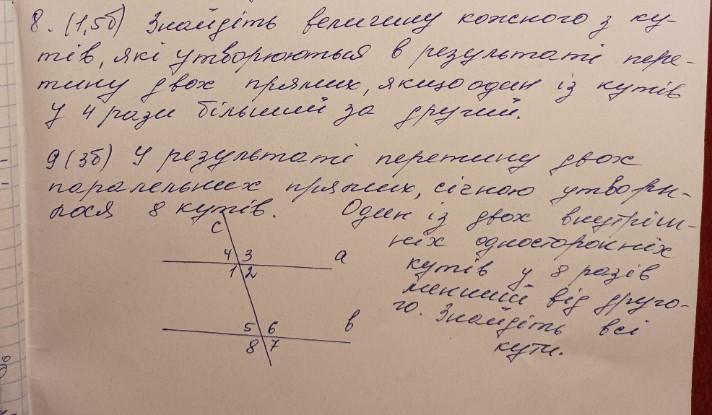 8. (1,5б) Знайдіть величину кожного з ку-
тів, які утворюються в результаті пере-
тину двох прямих, якщо один із кутів
у 4 рази більший за другий.
9 (3б) У результаті перетину двох
паралельних прямих, січною утвори-
лося 8 кутів.
Один із двох внутріш-
ніх односторонніх
кутів у 8 разів
менший від друго-
го. Знайдіть всі
кути.
c
4 3 a
1 2
5 6 в
8 7